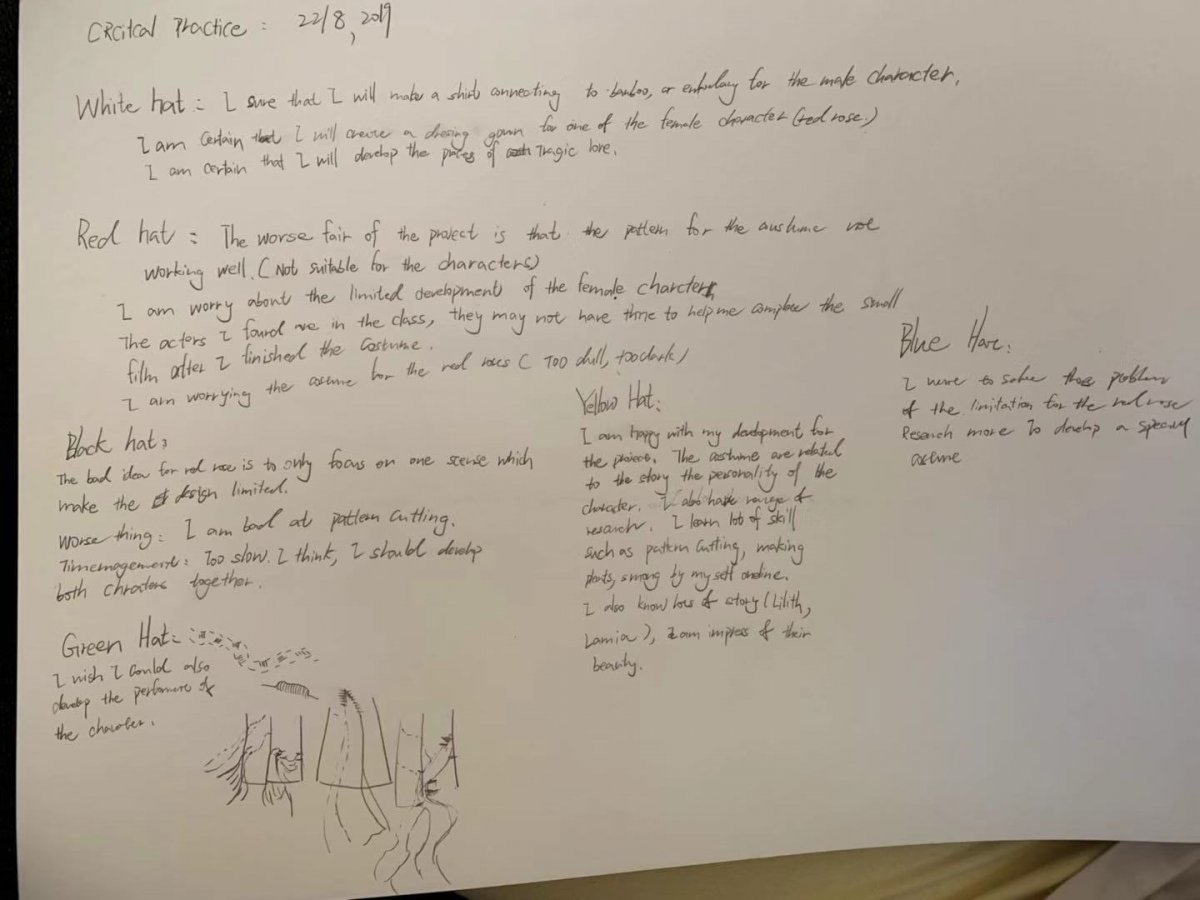 CRcitcal Practice : 22/8, 2019
White hat : I sure that I will make a shirt connecting to bamboo, or for the male character.
I am certain that I will create a dressing gown for one of the female character (red rose.)
I am certain that I will develop the of Tragic love.
Red hat : The worse fair of the project is that the pattern for the not
working well. (Not suitable for the characters)
I am worry about the limited development of the female
The actors I found are in the class, they may not have time to help me complete the small
film after I finished the costume.
I am worrying the for the red roses ( Too dull, too dark)
Black hat :
The bad idea for red rose is to only focus on one which
make the design limited.
Worse thing : I am bad at pattern cutting.
Timemagement : Too slow. I think, I should develop
both together.
Yellow Hat :
I am happy with my development for
the project. The costume are related
to the story the personality of the
character. I also have range of
research. I learn lot of skill
such as pattern cutting, making
by my self online.
I also know lots of story (Lilith,
Lamia), I am impress of their
beauty.
Blue :
I to solve problem
of the limitation for the red rose
Research more To develop a special
Green Hat :
I wish I could also
develop the of
the